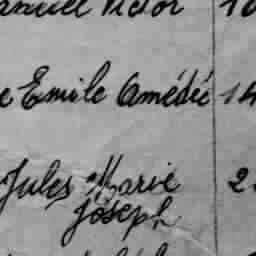 Victor 1
e Emile Amédéé 14
Jules Marie 2
Joseph